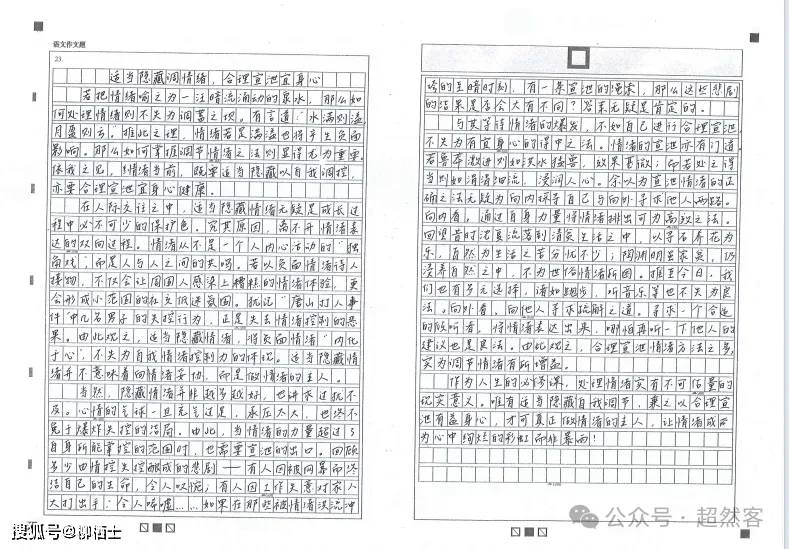 语文作文题
23.
适当隐藏调情绪，合理宣泄宜身心
若把情绪喻之为一注暗流涌动的泉水，那么如
何处理情绪则不失为调蓄之坝。有言道：水满则溢，
月盈则亏，推此之理，情绪若是满溢也将产生负面
影响。那么如何掌握调节情绪之法则显得尤为重要。
依我之见，纠情绪当前，既要适当隐藏以自我调控，
亦要合理宣泄宜身心健康。
在人际交往之中，适当隐藏情绪无疑是成长过
程中必不可少的保护色。究其原因，离不开情绪表
达的双向过程。情绪从不是一个人内心活动的“独
角戏，而是人与人之间的共鸣。若以负面情绪待人
接物，不仅会让周围人感染上糟糕的情绪体验，更
会形成小范围的社交低迷氛围。犹记“唐山打人事
件”中几名男子的失控行为，正是失去情绪控制的恶
果。由此观之，适当隐藏情绪，将负面情绪“内化
于心”，不失为自我情绪控制力的体现。适当隐藏情
绪并不意味着向情绪妥协，而是做情绪的主人。
当然，隐藏情绪并非越多越好，也讲求过犹不
及。心情的气球一旦充气过足，承压太大，也终不
免于爆炸失控的结局。由此，当情绪的力量超过了
自身所能掌控的范围时，也需要宣泄的出口。回顾
多少由情控失控酿成的悲剧——有人因被网暴而终
结自己的生命，令人叹惋，有人因工作失意对家人
大打出手，令人唏嘘……如果在那些被情绪洪流冲
的至暗时刻，有一条宣泄的渠道，那么这些悲剧
的结果是否会大有不同？答案无疑是肯定的。
与其等待情绪的爆发，不如自己进行合理宣泄，
不失为有宜身心的择中之法。情绪的宣泄亦有门道，
若鲁莽激进则如洪水猛兽，效果甚微；而若处之得
当则如涓涓细流，浸润人心。余以为宣泄情绪的正
确之法无疑为向内探寻自己与向外寻求他人两路。
向内看，通过自身力量将情绪排出可为高效之法。
回望昔时沈复流落到清贫生活之中，以寻石养花为
乐，自然为生活之苦分忧不少；陶渊明虽家贫，仍
浸养自然之中，不为世俗情绪所困。推至今日，我
们也有多元选择，诸如跑步，听音乐等也不失为良
法。向外看，向他人寻求疏解之道。寻求一个合适
的倾听者，将情绪表达出来，哪怕再听一下他人的
建议也是良法。由此观之，合理宣泄情绪方法之多，
实为调节情绪有所增益。
作为人生的必修课，处理情绪实有不可估量的
现实意义。唯有适当隐藏自我调节，兼之以合理宣
泄有益身心，才可真正做情绪的主人，让情绪成为
为心中绚烂的彩虹而非暴雨！
搜狐号@柳栖士
公众号·超然客